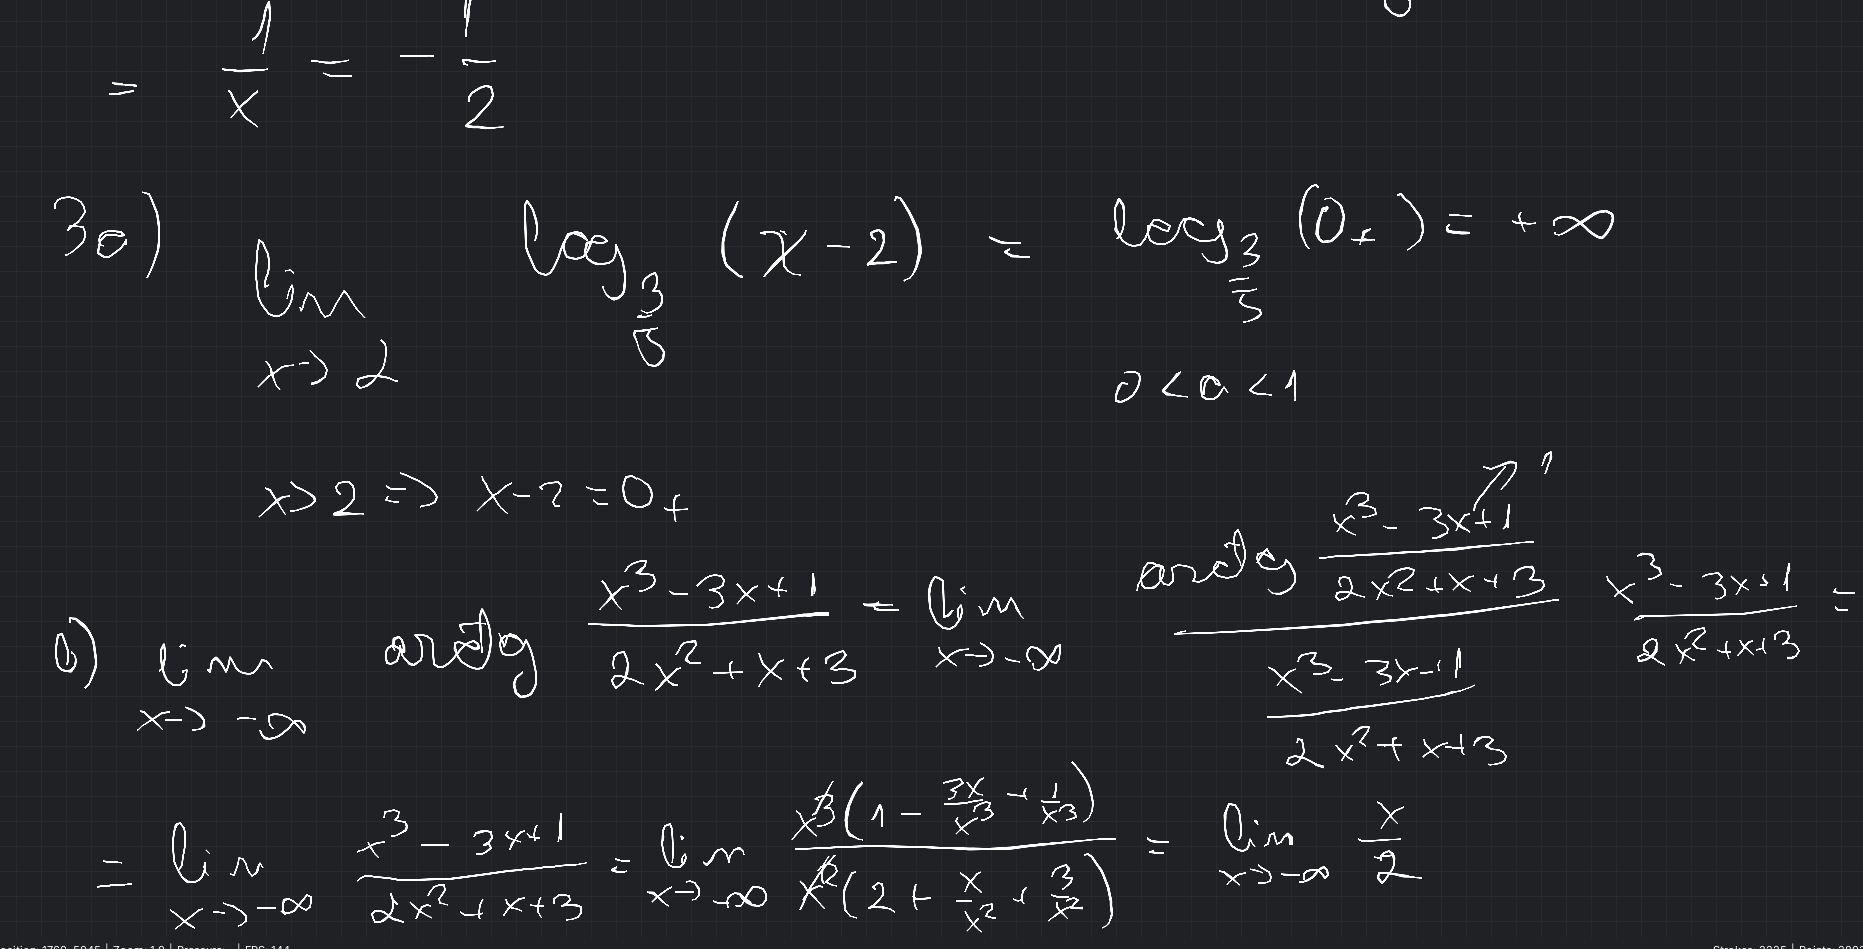 = 1/x = - 1/2
3a) lim x→2 log_{3/5} (x-2) = log_{3/5} (0₊) = +∞
0 < a < 1
x>2 => x-2 = 0₊
b) lim x→-∞ arctg (x³-3x+1)/(2x²+x+3) = lim x→-∞ (arctg (x³-3x+1)/(2x²+x+3))/((x³-3x+1)/(2x²+x+3)) (x³-3x+1)/(2x²+x+3) =
= lim x→-∞ (x³-3x+1)/(2x²+x+3) = lim x→-∞ x³(1 - 3x/x³ + 1/x³)/x²(2 + x/x² + 3/x²) = lim x→-∞ x/2